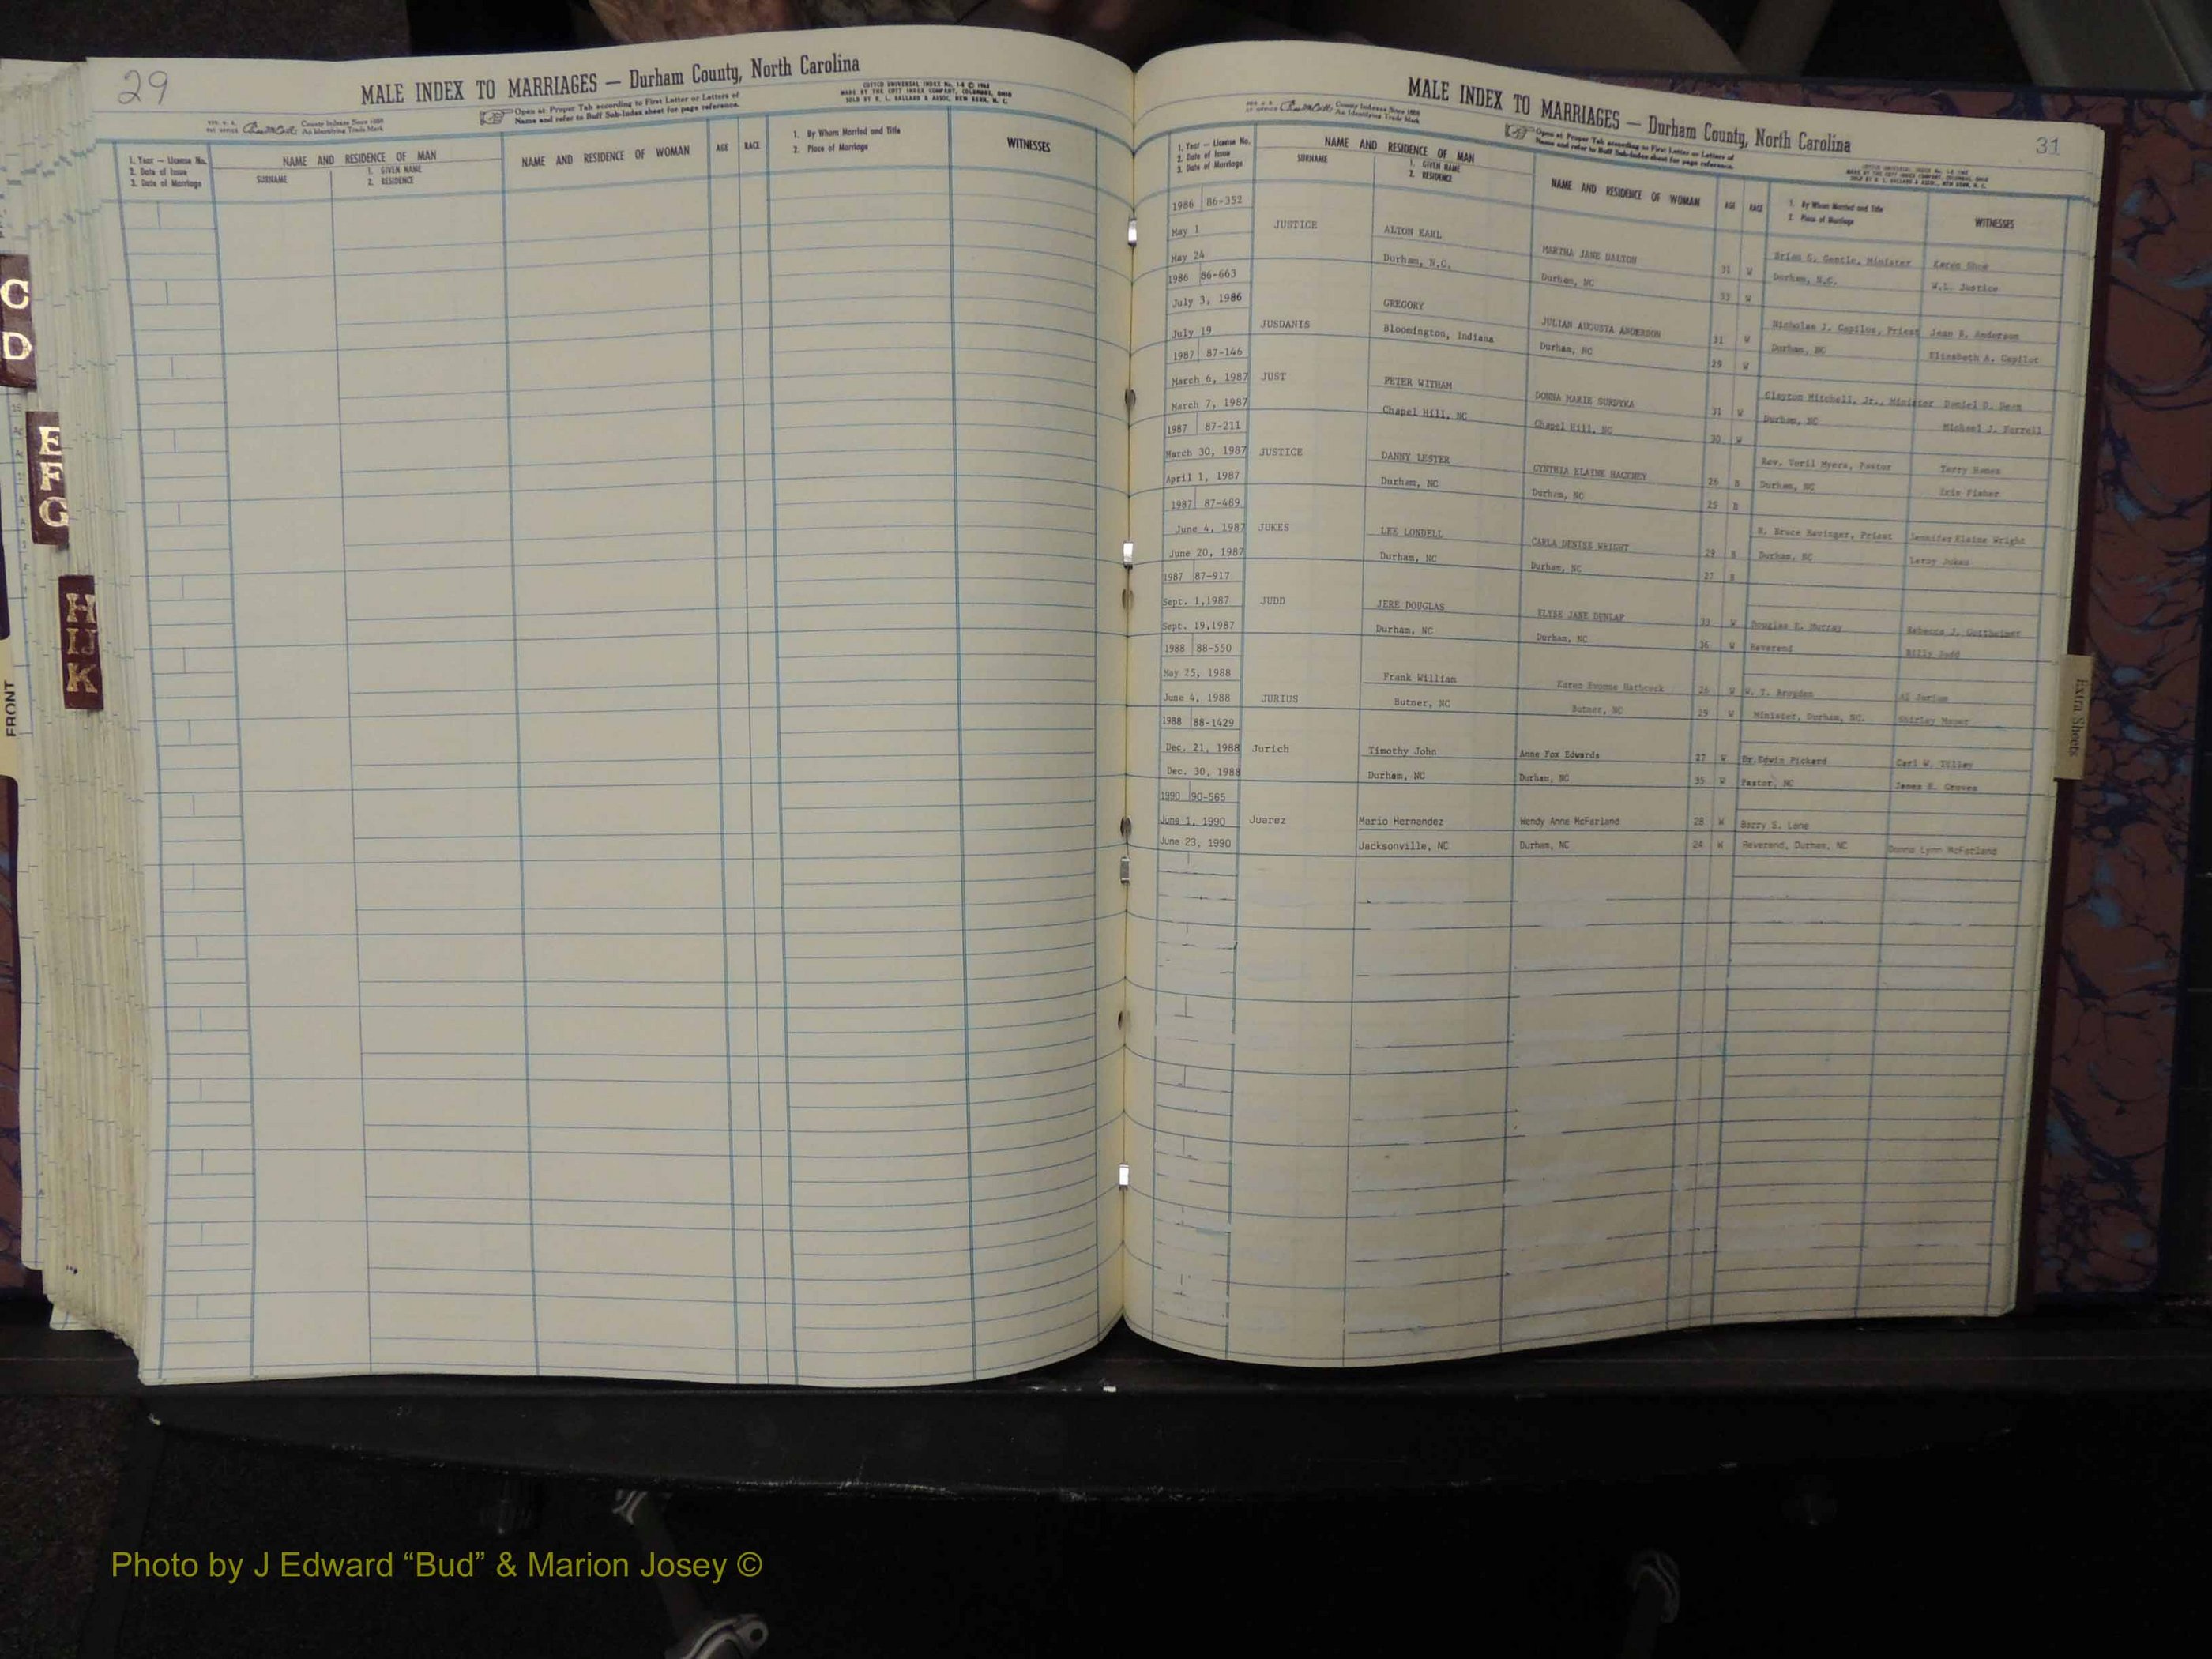 29
MALE INDEX TO MARRIAGES — Durham County, North Carolina
REG. U. S. PAT. OFFICE
County Indexes Since 1888
An Identifying Trade Mark
Open at Proper Tab according to First Letter or Letters of
Name and refer to Buff Sub-Index sheet for page reference.
COTTCO UNIVERSAL INDEX
MADE BY THE COTT INDEX COMPANY, COLUMBUS, OHIO
SOLD BY
1. Year — License No.
2. Date of Issue
3. Date of Marriage
NAME AND RESIDENCE OF MAN
SURNAME
1. GIVEN NAME
2. RESIDENCE
NAME AND RESIDENCE OF WOMAN
AGE
RACE
1. By Whom Married and Title
2. Place of Marriage
WITNESSES
C
D
E
F
G
H
IJ
K
FRONT
MALE INDEX TO MARRIAGES — Durham County, North Carolina
31
County Indexes Since 1888
An Identifying Trade Mark
Open at Proper Tab according to First Letter or Letters of
Name and refer to Buff Sub-Index sheet for page reference.
1. Year — License No.
2. Date of Issue
3. Date of Marriage
NAME AND RESIDENCE OF MAN
SURNAME
1. GIVEN NAME
2. RESIDENCE
NAME AND RESIDENCE OF WOMAN
AGE
RACE
1. By Whom Married and Title
2. Place of Marriage
WITNESSES
1986 86-352
May 1 JUSTICE ALTON EARL MARTHA JANE DALTON 31 W Brian G. Gentle, Minister Karen Shoe
May 24 Durham, N.C. Durham, NC 33 W Durham, N.C. W.L. Justice
1986 86-663
July 3, 1986 GREGORY JULIAN AUGUSTA ANDERSON 31 W Nicholas J. Capilos, Priest Jean B. Anderson
July 19 JUSDANIS Bloomington, Indiana Durham, NC 29 W Durham, NC Elizabeth A. Capilot
1987 87-146
March 6, 1987 JUST PETER WITHAM DONNA MARIE SURDYKA 31 W Clayton Mitchell, Jr., Minister Daniel D.
March 7, 1987 Chapel Hill, NC Chapel Hill, NC 30 W Durham, NC Michael J. Farrell
1987 87-211
March 30, 1987 JUSTICE DANNY LESTER CYNTHIA ELAINE HACKNEY 26 B Rev. Veril Myers, Pastor Terry
April 1, 1987 Durham, NC Durham, NC 25 B Durham, NC Fisher
1987 87-489
June 4, 1987 JUKES LEE LONDELL CARLA DENISE WRIGHT 29 B Bruce Havinger, Priest Jennifer Elaine Wright
June 20, 1987 Durham, NC Durham, NC 27 B Durham, NC Leroy Jukes
1987 87-917
Sept. 1,1987 JUDD JERE DOUGLAS ELYSE JANE DUNLAP 33 W Douglas E. Murray Rebecca J. Gottheimer
Sept. 19,1987 Durham, NC Durham, NC 36 W Reverend Billy Judd
1988 88-550
May 25, 1988 Frank William Karen Evonne Hathcock 26 W W. T. Brogden Al Jurius
June 4, 1988 JURIUS Butner, NC Butner, NC 29 W Minister, Durham, NC. Shirley
1988 88-1429
Dec. 21, 1988 Jurich Timothy John Anne Fox Edwards 37 W Dr.Edwin Pickard Carl W. Tilley
Dec. 30, 1988 Durham, NC Durham, NC 35 W Pastor, NC James E. Groves
1990 90-565
June 1, 1990 Juarez Mario Hernandez Wendy Anne McFarland 28 W Barry S. Lane
June 23, 1990 Jacksonville, NC Durham, NC 24 W Reverend, Durham, NC Donna Lynn McFarland
Extra Sheets
Photo by J Edward “Bud” & Marion Josey ©